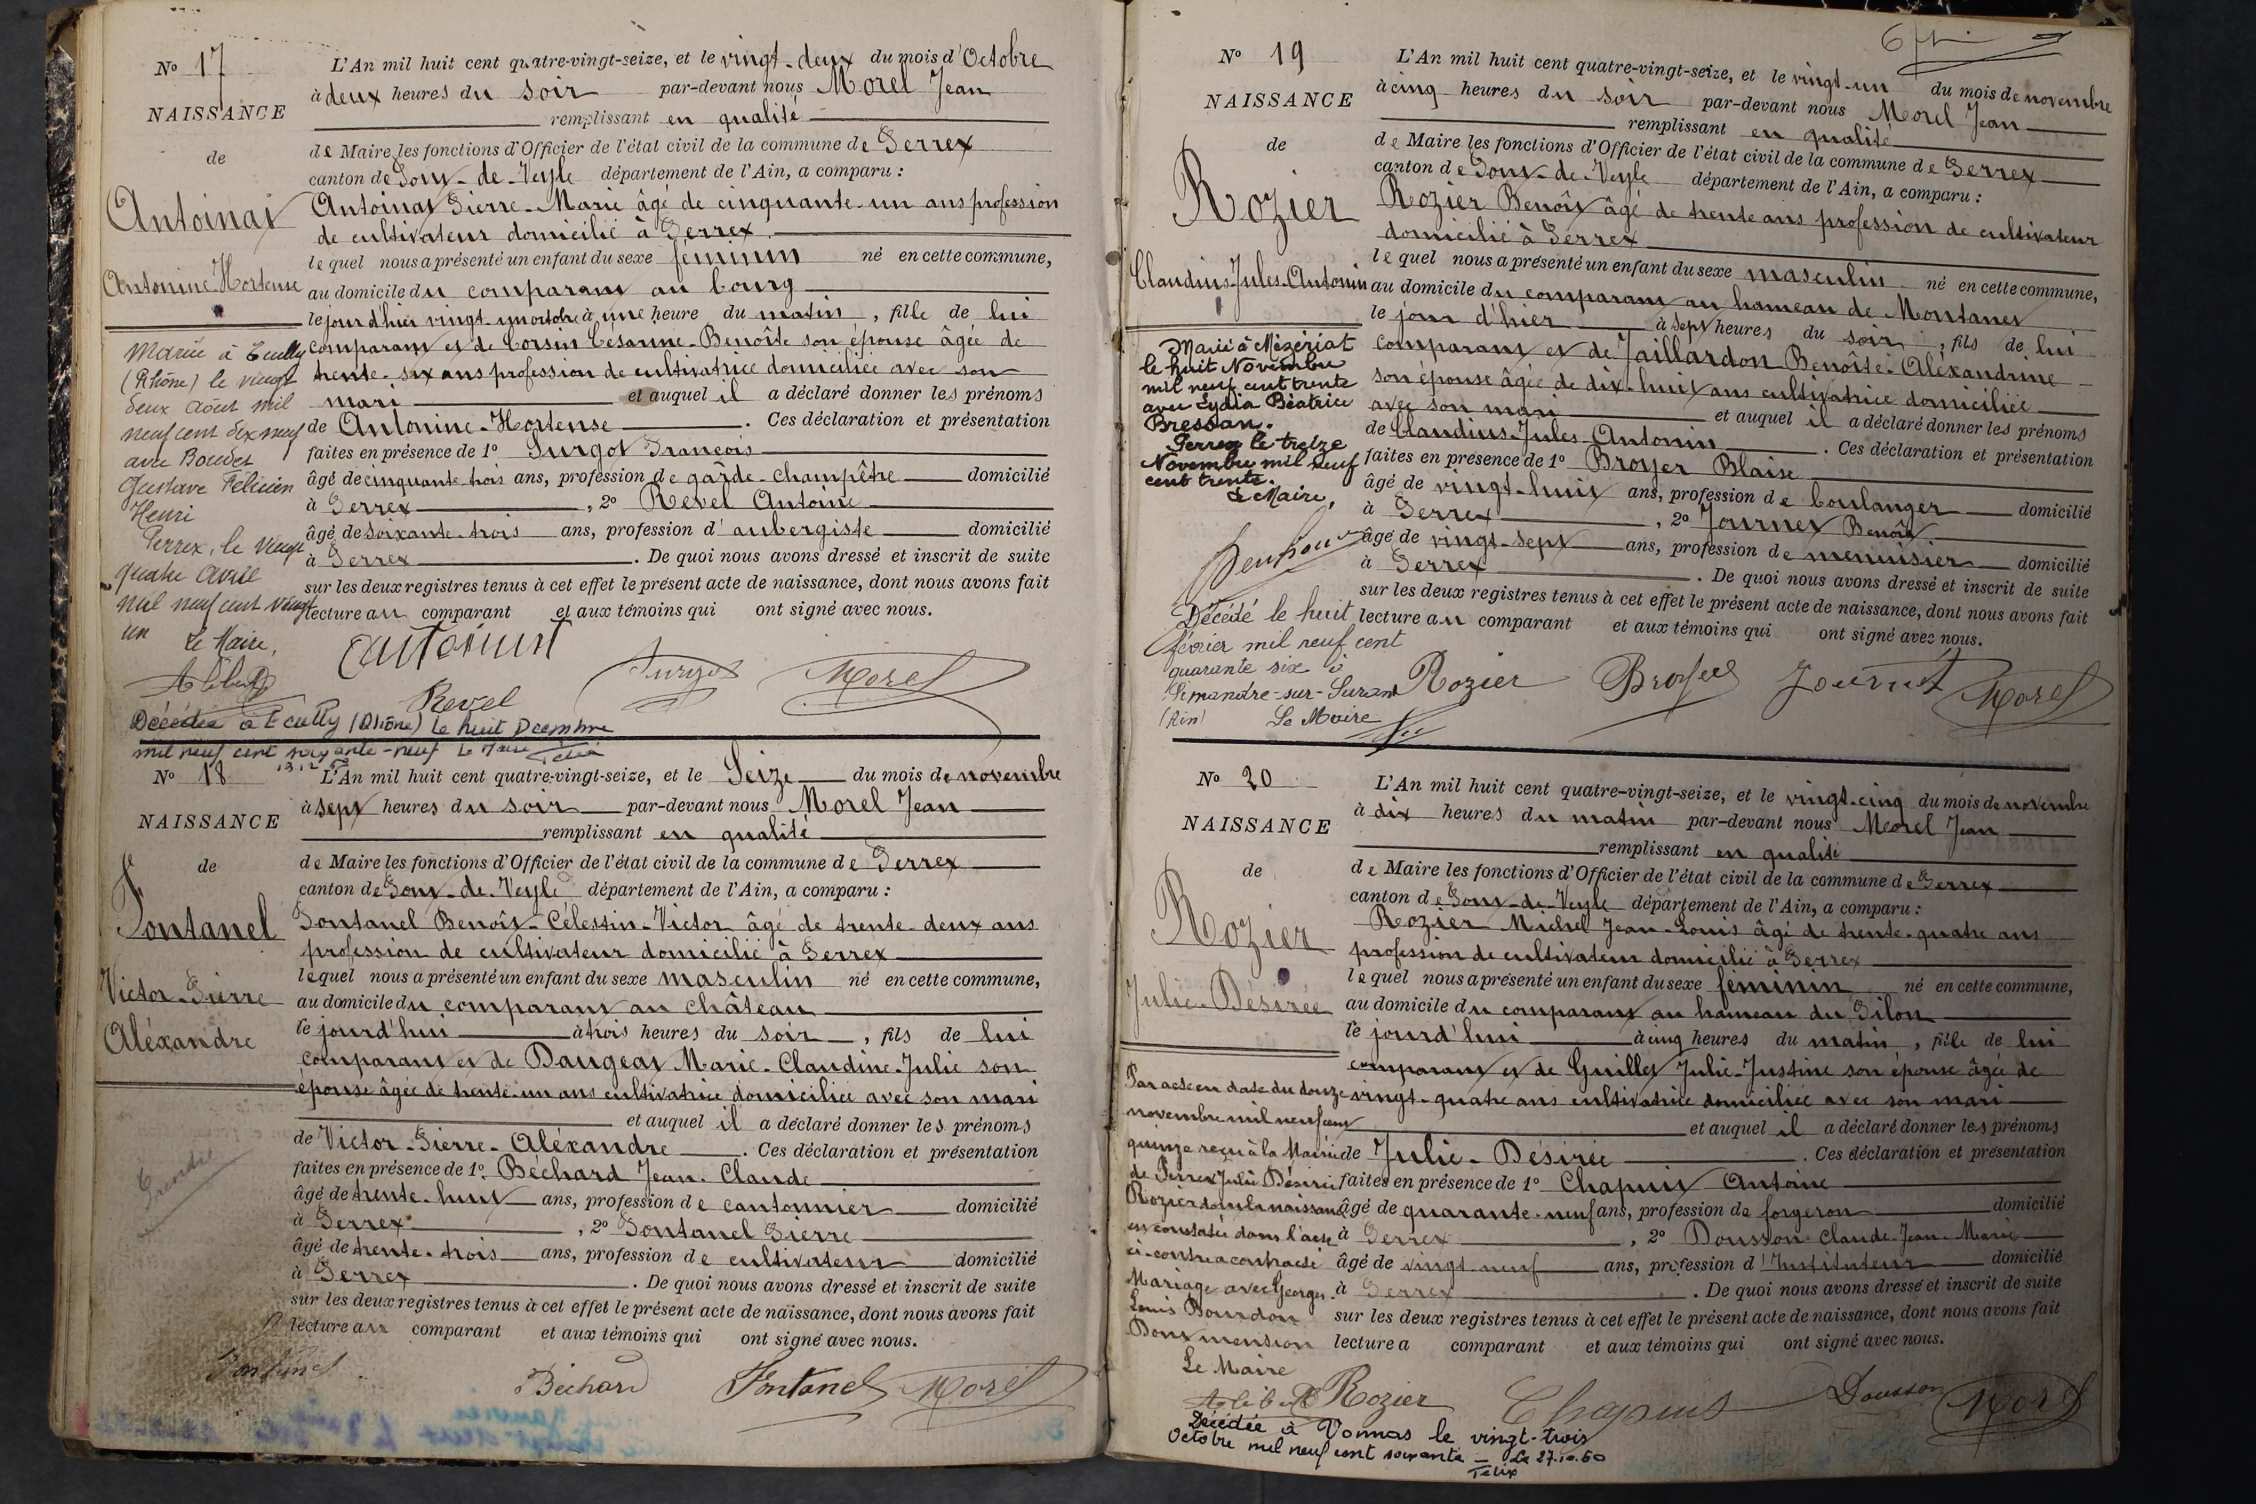 N° 17
NAISSANCE
de
Antoinat
Antonine-Hortense
Mariée à Ecully
(Rhône) le vingt
deux août mil
neuf cent dix neuf
avec Boudet
Gustave Félicien
Henri
Perrex, le vingt
quatre avril
mil neuf cent vingt
un
Le Maire,
L'An mil huit cent quatre-vingt-seize, et le vingt-deux du mois d'Octobre
à deux heures du soir par-devant nous Morel Jean
remplissant en qualité
de Maire les fonctions d'Officier de l'état civil de la commune de Perrex
canton de Pont-de-Veyle département de l'Ain, a comparu :
Antoinat Pierre-Marie âgé de cinquante-un ans profession
de cultivateur domicilié à Perrex
lequel nous a présenté un enfant du sexe féminin né en cette commune,
au domicile du comparant au bourg
le jour d'hier vingt-un octobre à une heure du matin, fille de lui
comparant et de Corsin Césarine-Benoîte son épouse âgée de
trente-six ans profession de cultivatrice domiciliée avec son
mari et auquel il a déclaré donner les prénoms
de Antonine-Hortense. Ces déclaration et présentation
faites en présence de 1° Surgot François
âgé de cinquante-trois ans, profession de garde-champêtre domicilié
à Perrex, 2° Revel Antoine
âgé de soixante-trois ans, profession d'aubergiste domicilié
à Perrex. De quoi nous avons dressé et inscrit de suite
sur les deux registres tenus à cet effet le présent acte de naissance, dont nous avons fait
lecture au comparant et aux témoins qui ont signé avec nous.
Revel
Surgot
Morel
Décédée à Ecully (Rhône) le huit Décembre
mil neuf cent soixante-neuf Le Maire
N° 18
NAISSANCE
de
Fontanel
Victor-Pierre
Aléxandre
L'An mil huit cent quatre-vingt-seize, et le Seize du mois de novembre
à sept heures du soir par-devant nous Morel Jean
remplissant en qualité
de Maire les fonctions d'Officier de l'état civil de la commune de Perrex
canton de Pont-de-Veyle département de l'Ain, a comparu :
Fontanel Benoît-Célestin-Victor âgé de trente-deux ans
profession de cultivateur domicilié à Perrex
lequel nous a présenté un enfant du sexe masculin né en cette commune,
au domicile du comparant au château
le jourd'hui à trois heures du soir, fils de lui
comparant et de Daugeat Marie-Claudine-Julie son
épouse âgée de trente-un ans cultivatrice domiciliée avec son mari
et auquel il a déclaré donner les prénoms
de Victor-Pierre-Aléxandre. Ces déclaration et présentation
faites en présence de 1° Béchard Jean-Claude
âgé de trente-huit ans, profession de cantonnier domicilié
à Perrex, 2° Fontanel Pierre
âgé de trente-trois ans, profession de cultivateur domicilié
à Perrex. De quoi nous avons dressé et inscrit de suite
sur les deux registres tenus à cet effet le présent acte de naissance, dont nous avons fait
lecture au comparant et aux témoins qui ont signé avec nous.
Fontanel
Béchard
Fontanel
Morel
N° 19
NAISSANCE
de
Rozier
Claudius-Jules-Antonin
Marié à Mézériat
le huit Novembre
mil neuf cent trente
avec Lydia Béatrice
Bressan.
Perrex le treize
Novembre mil neuf
cent trente.
Le Maire,
Décédé le huit
février mil neuf cent
quarante six à
Simandre-sur-Suran
(Ain)
Le Maire
L'An mil huit cent quatre-vingt-seize, et le vingt-un du mois de novembre
à cinq heures du soir par-devant nous Morel Jean
remplissant en qualité
de Maire les fonctions d'Officier de l'état civil de la commune de Perrex
canton de Pont-de-Veyle département de l'Ain, a comparu :
Rozier Benoît âgé de trente ans profession de cultivateur
domicilié à Perrex
lequel nous a présenté un enfant du sexe masculin né en cette commune,
au domicile du comparant au hameau de Montanet
le jour d'hier à sept heures du soir, fils de lui
comparant et de Jaillardon Benoîte-Aléxandrine
son épouse âgée de dix-huit ans cultivatrice domiciliée
avec son mari et auquel il a déclaré donner les prénoms
de Claudius-Jules-Antonin. Ces déclaration et présentation
faites en présence de 1° Broyer Blaise
âgé de vingt-huit ans, profession de boulanger domicilié
à Perrex, 2° Journet Benoît.
âgé de vingt-sept ans, profession de menuisier domicilié
à Perrex. De quoi nous avons dressé et inscrit de suite
sur les deux registres tenus à cet effet le présent acte de naissance, dont nous avons fait
lecture au comparant et aux témoins qui ont signé avec nous.
Rozier
Broyer
Journet
Morel
N° 20
NAISSANCE
de
Rozier
Julie-Désirée
Par acte en date du douze
novembre mil neuf cent
quinze reçu à la Mairie
de Perrex Julie Désirée
Rozier dont la naissance
est constatée dans l'acte
ci-contre a contracté
Mariage avec Georges
Louis Bourdon
Dont mention
Le Maire
L'An mil huit cent quatre-vingt-seize, et le vingt-cinq du mois de novembre
à dix heures du matin par-devant nous Morel Jean
remplissant en qualité
de Maire les fonctions d'Officier de l'état civil de la commune de Perrex
canton de Pont-de-Veyle département de l'Ain, a comparu :
Rozier Michel Jean-Louis âgé de trente-quatre ans
profession de cultivateur domicilié à Perrex
lequel nous a présenté un enfant du sexe féminin né en cette commune,
au domicile du comparant au hameau du Pilon
le jourd'hui à cinq heures du matin, fille de lui
comparant et de Guillet Julie-Justine son épouse âgée de
vingt-quatre ans cultivatrice domiciliée avec son mari
et auquel il a déclaré donner les prénoms
de Julie-Désirée. Ces déclaration et présentation
faites en présence de 1° Chapuis Antoine
âgé de quarante-neuf ans, profession de forgeron domicilié
à Perrex, 2° Dousson Claude-Jean-Marie
âgé de vingt-neuf ans, profession d'Instituteur domicilié
à Perrex. De quoi nous avons dressé et inscrit de suite
sur les deux registres tenus à cet effet le présent acte de naissance, dont nous avons fait
lecture a comparant et aux témoins qui ont signé avec nous.
Rozier
Chapuis
Dousson
Morel
Décédée à Vonnas le vingt-trois
Octobre mil neuf cent soixante — Le 27.10.60
Félix